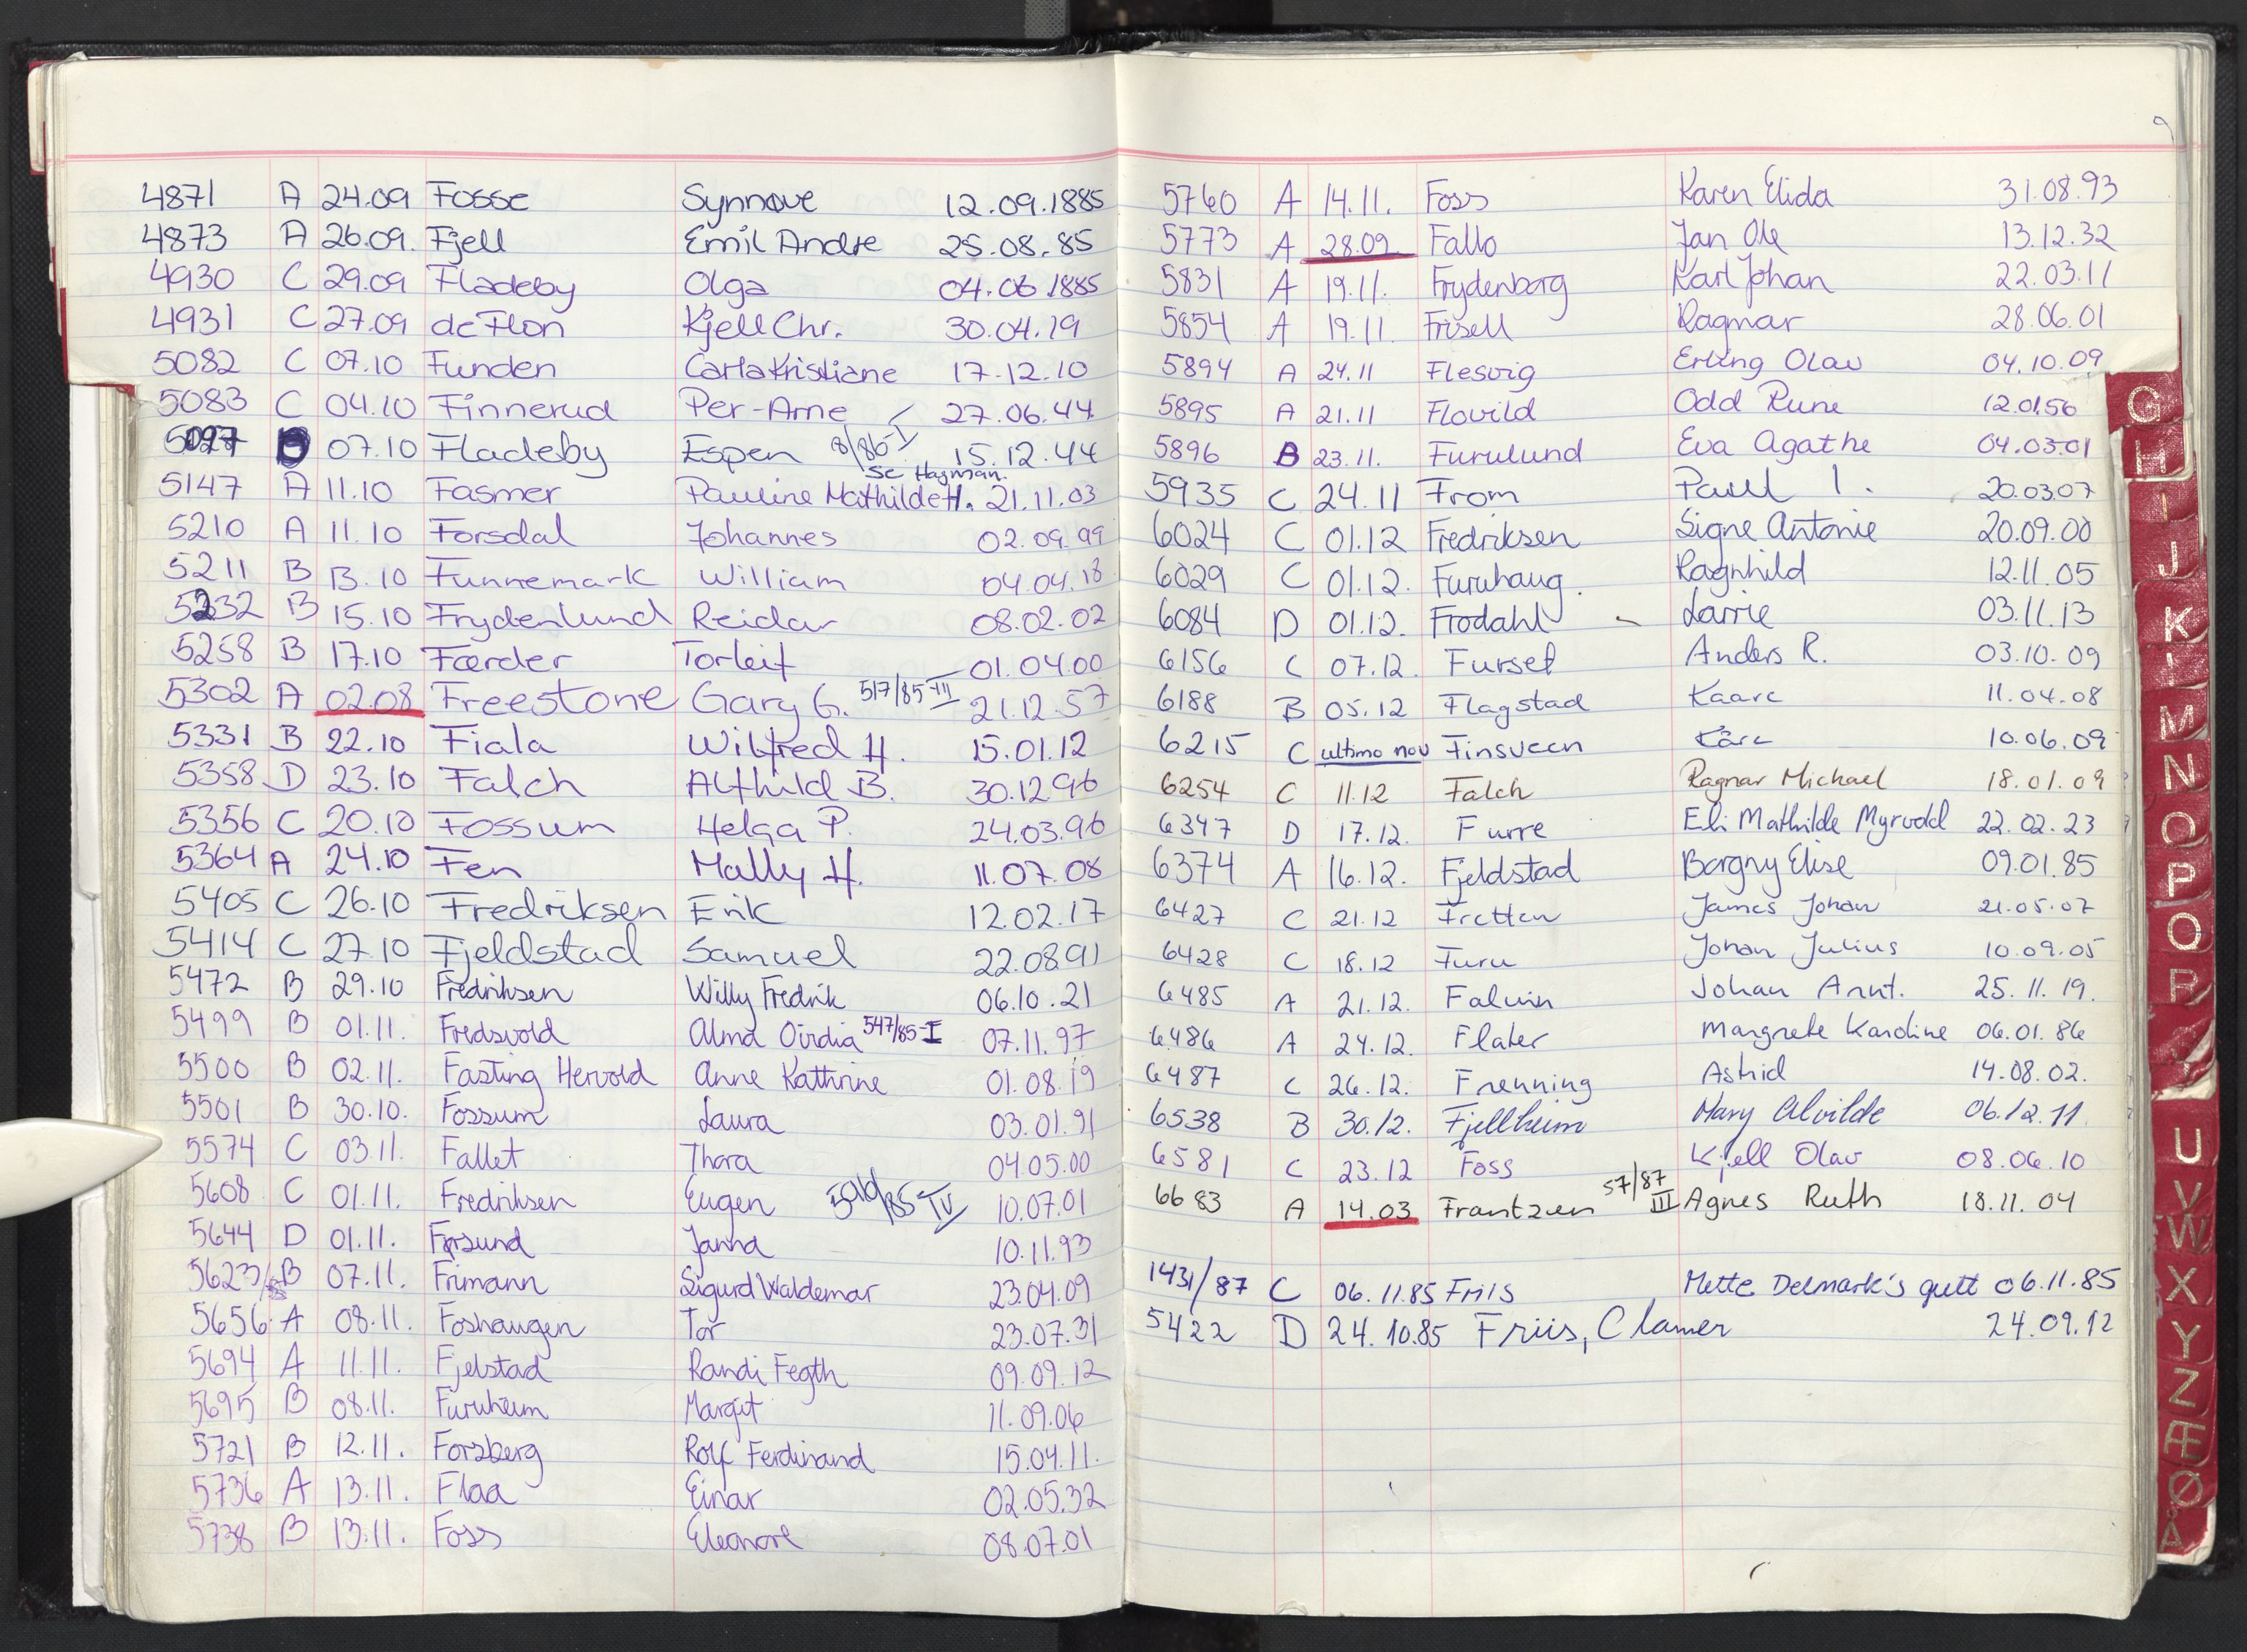 4871 A 24.09 Fosse Synnøve 12.09.1885
4873 A 26.09. Fjell Emil Andre 25.08.85
4930 C 29.09 Fladeby Olga 04.06 1885
4931 C 27.09 de Flon Kjell Chr. 30.04.19
5082 C 07.10 Funden Carla Kristiane 17.12.10
5083 C 04.10 Finnerud Per-Arne 27.06.44
5097 B 07.10 Fladeby Espen 8/86-I 15.12.44
se Hagman.
5147 A 11.10 Fasmer Pauline Mathilde H. 21.11.03
5210 A 11.10 Forsdal Johannes 02.09.99
5211 B 13.10 Funnemark William 04.04.18
5232 B 15.10 Frydenlund Reidar 08.02.02
5258 B 17.10 Færder Torleif 01.04.00
5302 A 02.08 Freestone Gary G. 517/85-III 21.12.57
5331 B 22.10 Fiala Wilfred H. 15.01.12
5358 D 23.10 Falch Alfhild B. 30.12.96
5356 C 20.10 Fossum Helga P. 24.03.96
5364 A 24.10 Fen Mally H. 11.07.08
5405 C 26.10 Fredriksen Erik 12.02.17
5414 C 27.10 Fjeldstad Samuel 22.08.91
5472 B 29.10 Fredriksen Willy Fredrik 06.10.21
5499 B 01.11. Fredsvold Alma Ovidia 547/85-I 07.11.97
5500 B 02.11. Fasting Hervold Anne Kathrine 01.08.19
5501 B 30.10. Fossum Laura 03.01.91
5574 C 03.11. Fallet Thora 04.05.00
5608 C 01.11. Fredriksen Eugen /85 IV 10.07.01
5644 D 01.11. Førsund Janna 10.11.93
5623/ B 07.11. Frimann Sigurd Waldemar 23.04.09
5656 A 08.11. Foshaugen Tor 23.07.31
5694 A 11.11. Fjelstad Randi Fegth 09.09.12
5695 B 08.11. Furuheim Margit 11.09.06
5721 B 12.11. Forsberg Rolf Ferdinand 15.04.11.
5736 A 13.11. Flaa Einar 02.05.32
5738 B 13.11. Foss Eleonore 08.07.01
9
5760 A 14.11. Foss Karen Elida 31.08.93
5773 A 28.09 Fallo Jan Ole 13.12.32
5831 A 19.11. Frydenborg Karl Johan 22.03.11
5854 A 19.11 Frisell Ragnar 28.06.01
5894 A 24.11 Flesvig Erling Olav 04.10.09
5895 A 21.11 Flovild Odd Rune 12.01.56
5896 B 23.11. Furulund Eva Agathe 04.03.01
5935 C 24.11 From Paul I. 20.03.07
6024 C 01.12 Fredriksen Signe Antonie 20.09.00
6029 C 01.12. Furuhaug. Ragnhild 12.11.05
6084 D 01.12. Frodahl Larrie 03.11.13
6156 C 07.12. Furset Anders R. 03.10.09
6188 B 05.12 Flagstad Kaare 11.04.08
6215 C ultimo nov Finsveen Kåre 10.06.09
6254 C 11.12 Falch Ragnar Michael 18.01.09
6347 D 17.12. Furre Eli Mathilde Myrvold 22.02.23
6374 A 16.12. Fjeldstad Borgny Elise 09.01.85
6427 C 21.12 Fretten James Johan 21.05.07
6428 C 18.12 Furu Johan Julius 10.09.05
6485 A 21.12. Falvin Johan Arnt. 25.11.19.
6486 A 24.12. Flater Margrete Karoline 06.01.86
6487 C 26.12. Frenning Astrid 14.08.02.
6538 B 30.12. Fjellheim Mary Alvilde 06.12.11.
6581 C 23.12 Foss Kjell Olav 08.06.10
6683 A 14.03 Frantzen 57/87 III Agnes Ruth 18.11.04
1431/87 C 06.11.85 Friis Mette Delmark's gutt 06.11.85
5422 D 24.10.85 Friis, Clamer 24.09.12
G
H
I
J
K
L
M
N
O
P
Q
R
U
V
W
X
Y
Z
Æ
Ø
Å